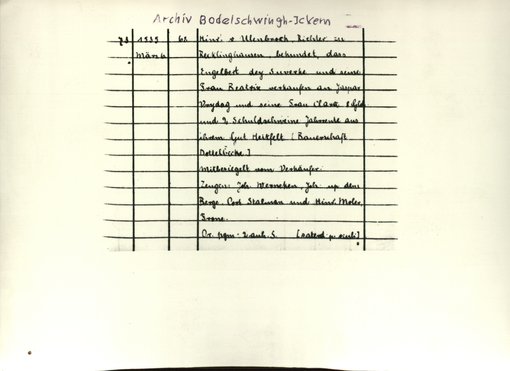 Archiv Bodelschwingh-Ickern
1535 68 Hinr. v Ulenbrock, Richter zu
März 6 Recklinghausen, bekundet, dass
Engelbert dey Suverke und seine
Frau Beatrix verkaufen an Jaspar
Vrydag und seine Frau Clara 8 Gld
und 2 Schuldschweine Jahrrente aus
ihrem Gut Hertfelt (Bauerschaft
Mitbesiegelt vom Verkäufer.
Zeugen: Joh. Werneken, Joh. up dem
Berge, Cort Stalman und Hinr. Moler,
Frone.
Or. pgm. 2 anh. S.